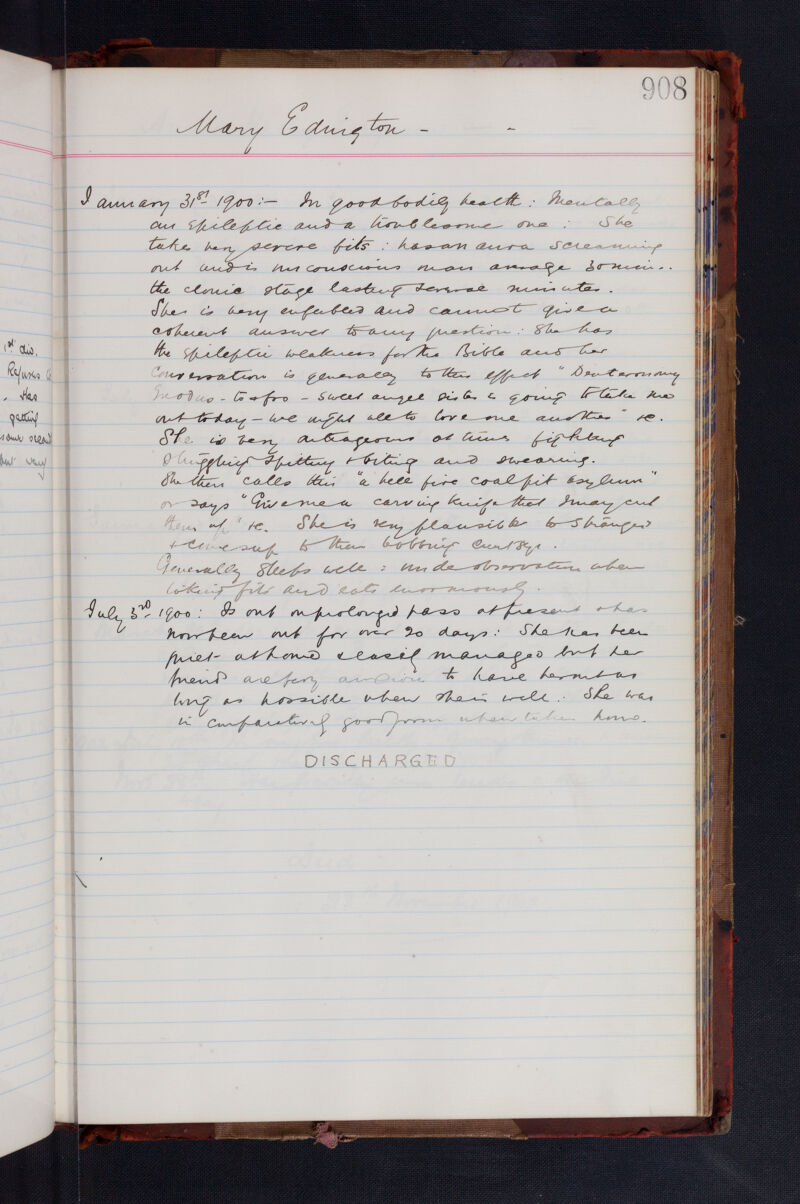 908
Mary Edington -   -
January 31st 1900:— In good bodily health: Mentally
an epileptic and a troublesome one: She
takes very severe fits: has an aura screaming
out and is unconscious on an average 30 mins.
the clonic stage lasting several minutes.
She is very enfeebled and cannot give a
coherent answer to any question: She has
the epileptic weakness for the Bible and her
conversation is generally to this effect "Deuteronomy
Exodus - to & fro - sweet angel sister is going to take me
out to day - we might all to love one another" &c.
She is very outrageous at times fighting
struggling spitting & biting and swearing.
She then calls this "a hell fire coalpit asylum"
or says "Give me a carving knife that I may cut
them up" &c. She is very plausible to strangers
& comes up to them bobbing curtseys.
Generally sleeps well: under observation when
taking fits and eats enormously.
July 3rd 1900: Is out on prolonged pass at present & has
now been out for over 20 days: She has been
quiet at home & easily managed but her
friends are very anxious to have her out as
long as possible when she is well. She was
in comparatively good form when taken home.
DISCHARGED
1st div.
Refuses
. Has
getting
very